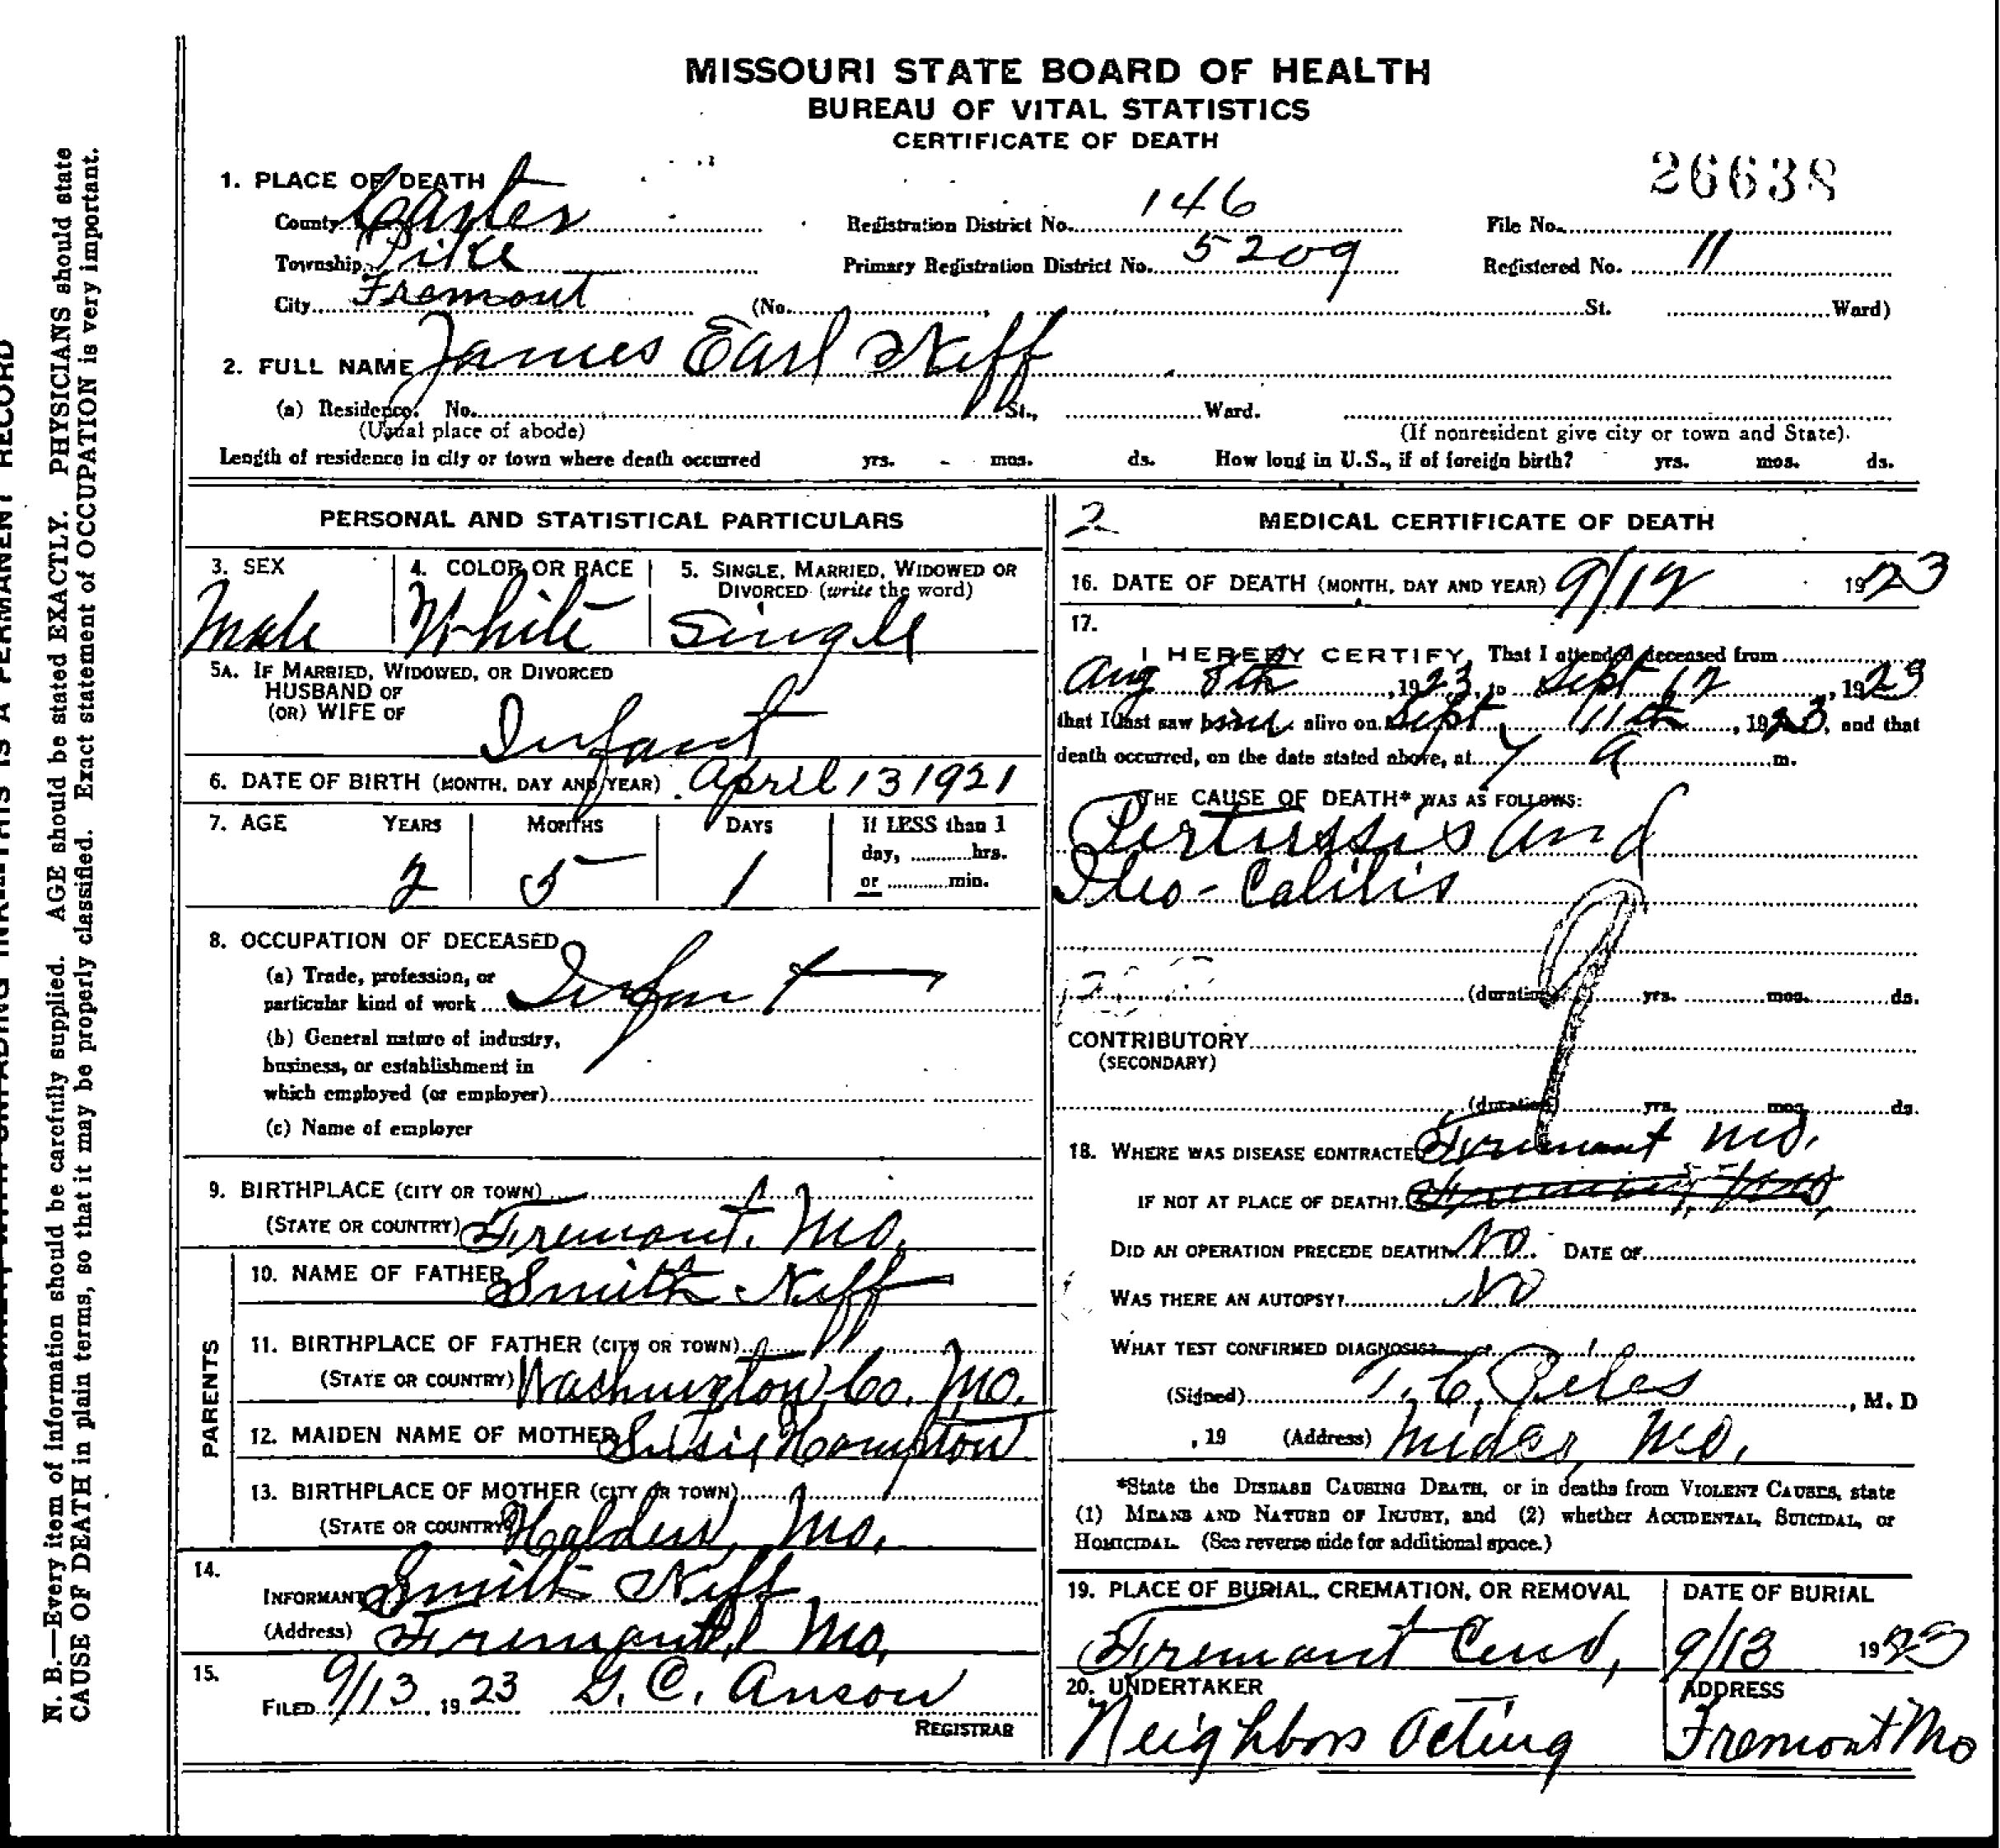 MISSOURI STATE BOARD OF HEALTH
BUREAU OF VITAL STATISTICS
CERTIFICATE OF DEATH
26638
1. PLACE OF DEATH
County Carter Registration District No. 146 File No.
Township Pike Primary Registration District No. 5209 Registered No. 11
City Fremont (No. St. Ward)
2. FULL NAME James Earl Neff
(a) Residence. No. St., Ward.
(Usual place of abode) (If nonresident give city or town and State).
Length of residence in city or town where death occurred yrs. mos. ds. How long in U.S., if of foreign birth? yrs. mos. ds.
PERSONAL AND STATISTICAL PARTICULARS
3. SEX 4. COLOR OR RACE 5. SINGLE, MARRIED, WIDOWED OR
DIVORCED (write the word)
Male White Single
5A. IF MARRIED, WIDOWED, OR DIVORCED
HUSBAND OF
(OR) WIFE OF
Infant
6. DATE OF BIRTH (MONTH, DAY AND YEAR) April 13 1921
7. AGE YEARS MONTHS DAYS If LESS than 1
day, hrs.
or min.
2 5 1
8. OCCUPATION OF DECEASED
(a) Trade, profession, or
particular kind of work Infant
(b) General nature of industry,
business, or establishment in
which employed (or employer)
(c) Name of employer
9. BIRTHPLACE (CITY OR TOWN)
(STATE OR COUNTRY) Fremont, Mo.
PARENTS
10. NAME OF FATHER Smith Neff
11. BIRTHPLACE OF FATHER (CITY OR TOWN)
(STATE OR COUNTRY) Washington Co. Mo.
12. MAIDEN NAME OF MOTHER Susie Hampton
13. BIRTHPLACE OF MOTHER (CITY OR TOWN)
(STATE OR COUNTRY) Mo.
14.
INFORMANT Smith Neff
(Address) Fremont, Mo.
15.
FILED 9/13, 1923 G. C. Anson
REGISTRAR
2 MEDICAL CERTIFICATE OF DEATH
16. DATE OF DEATH (MONTH, DAY AND YEAR) 9/12 1923
17.
I HEREBY CERTIFY, That I attended deceased from
Aug 8th, 1923, to Sept 12, 1923
that I last saw him alive on Sept. 11th, 1923, and that
death occurred, on the date stated above, at a m.
THE CAUSE OF DEATH* WAS AS FOLLOWS:
Pertussis and
Ileo-Calitis
(duration) yrs. mos. ds.
CONTRIBUTORY
(SECONDARY)
(duration) yrs. mos. ds.
18. WHERE WAS DISEASE CONTRACTED Fremont Mo.
IF NOT AT PLACE OF DEATH?
DID AN OPERATION PRECEDE DEATH? No. DATE OF
WAS THERE AN AUTOPSY? No
WHAT TEST CONFIRMED DIAGNOSIS?
(Signed) T. C. , M. D
, 19 (Address) Mo.
*State the DISEASE CAUSING DEATH, or in deaths from VIOLENT CAUSES, state
(1) MEANS AND NATURE OF INJURY, and (2) whether ACCIDENTAL, SUICIDAL, or
HOMICIDAL. (See reverse side for additional space.)
19. PLACE OF BURIAL, CREMATION, OR REMOVAL DATE OF BURIAL
Fremont 9/13 1923
20. UNDERTAKER ADDRESS
Neighbors Acting Fremont Mo
N. B.—Every item of information should be carefully supplied. AGE should be stated EXACTLY. PHYSICIANS should state
CAUSE OF DEATH in plain terms, so that it may be properly classified. Exact statement of OCCUPATION is very important.